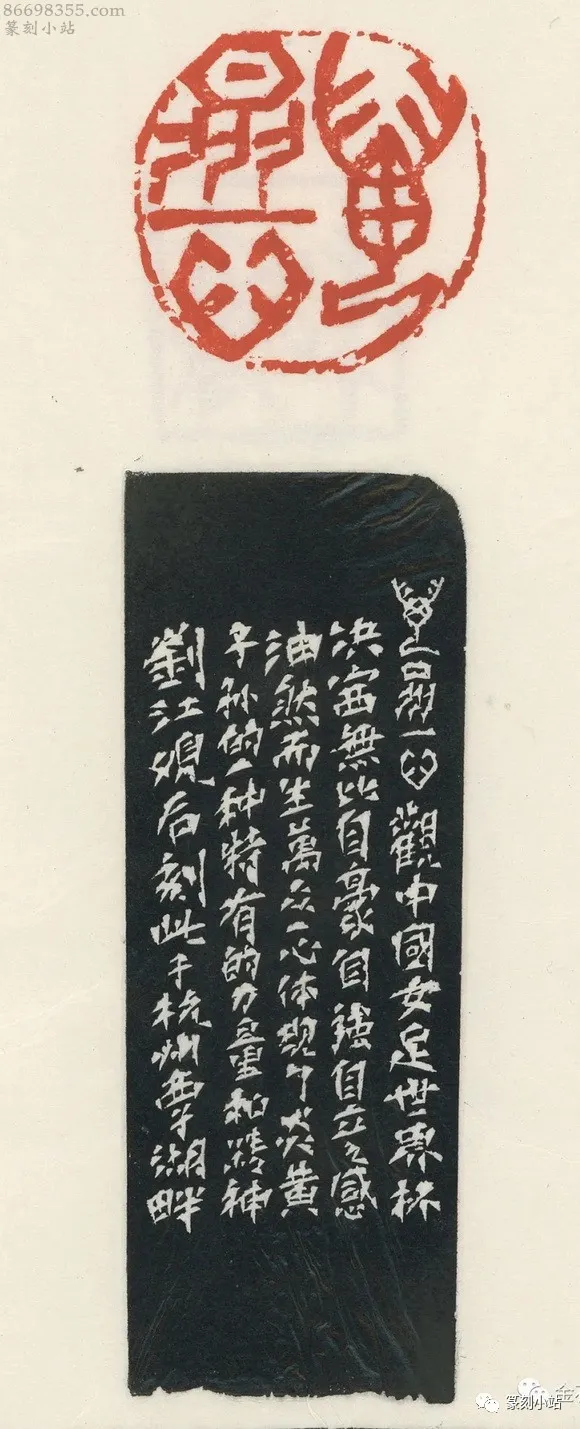 86698355.com
篆刻小站
萬眾一心
萬眾一心 觀中國女足世界杯
决赛無比自豪自强自立之感
油然而生萬众一心体现了炎黄
子孙的一种特有的力量和精神
劉江观后刻此于杭州西子湖畔
篆刻小站